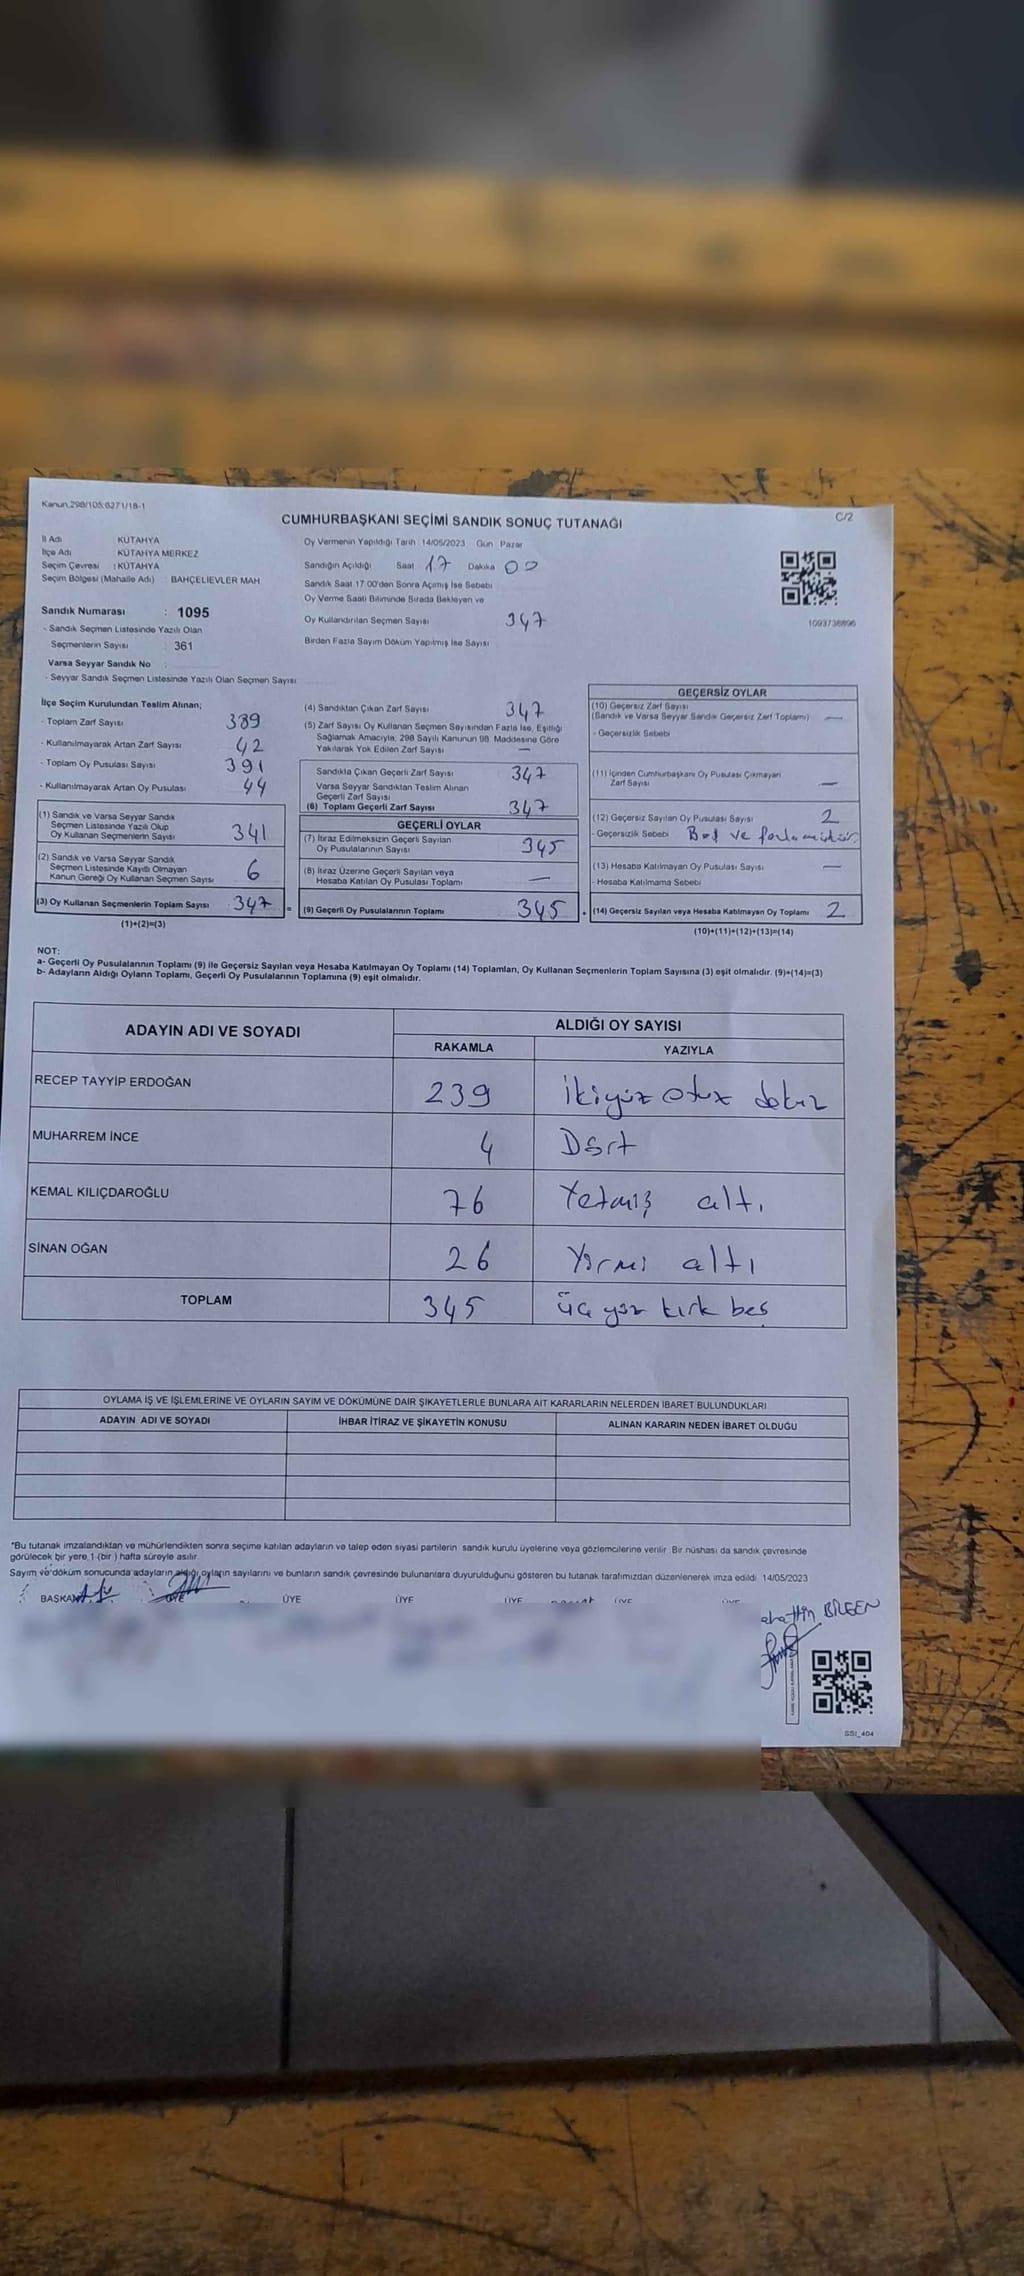 Kanun,298/105;6271/18-1
C/2
CUMHURBAŞKANI SEÇİMİ SANDIK SONUÇ TUTANAĞI
İl Adı : KÜTAHYA
İlçe Adı : KÜTAHYA MERKEZ
Seçim Çevresi : KÜTAHYA
Seçim Bölgesi (Mahalle Adı) : BAHÇELİEVLER MAH.
Sandık Numarası : 1095
- Sandık Seçmen Listesinde Yazılı Olan
Seçmenlerin Sayısı : 361
Varsa Seyyar Sandık No :
- Seyyar Sandık Seçmen Listesinde Yazılı Olan Seçmen Sayısı
Oy Vermenin Yapıldığı Tarih :14/05/2023 Gün :Pazar
Sandığın Açıldığı Saat 17 Dakika 00
Sandık Saat 17.00'den Sonra Açılmış İse Sebebi
Oy Verme Saati Bitiminde Sırada Bekleyen ve
Oy Kullandırılan Seçmen Sayısı 347
Birden Fazla Sayım Döküm Yapılmış İse Sayısı
1093736896
İlçe Seçim Kurulundan Teslim Alınan;
- Toplam Zarf Sayısı 389
- Kullanılmayarak Artan Zarf Sayısı 42
- Toplam Oy Pusulası Sayısı 391
- Kullanılmayarak Artan Oy Pusulası 44
(1) Sandık ve Varsa Seyyar Sandık
Seçmen Listesinde Yazılı Olup
Oy Kullanan Seçmenlerin Sayısı 341
(2) Sandık ve Varsa Seyyar Sandık
Seçmen Listesinde Kayıtlı Olmayan
Kanun Gereği Oy Kullanan Seçmen Sayısı 6
(3) Oy Kullanan Seçmenlerin Toplam Sayısı 347
(1)+(2)=(3)
(4) Sandıktan Çıkan Zarf Sayısı 347
(5) Zarf Sayısı Oy Kullanan Seçmen Sayısından Fazla İse, Eşitliği
Sağlamak Amacıyla, 298 Sayılı Kanunun 98. Maddesine Göre
Yakılarak Yok Edilen Zarf Sayısı —
Sandıkta Çıkan Geçerli Zarf Sayısı 347
Varsa Seyyar Sandıktan Teslim Alınan
Geçerli Zarf Sayısı
(6) Toplam Geçerli Zarf Sayısı 347
GEÇERLİ OYLAR
(7) İtiraz Edilmeksizin Geçerli Sayılan
Oy Pusulalarının Sayısı 345
(8) İtiraz Üzerine Geçerli Sayılan veya
Hesaba Katılan Oy Pusulası Toplamı —
(9) Geçerli Oy Pusulalarının Toplamı 345
GEÇERSİZ OYLAR
(10) Geçersiz Zarf Sayısı
(Sandık ve Varsa Seyyar Sandık Geçersiz Zarf Toplamı) —
- Geçersizlik Sebebi
(11) İçinden Cumhurbaşkanı Oy Pusulası Çıkmayan
Zarf Sayısı —
(12) Geçersiz Sayılan Oy Pusulası Sayısı 2
- Geçersizlik Sebebi Boş ve
(13) Hesaba Katılmayan Oy Pusulası Sayısı —
- Hesaba Katılmama Sebebi
(14) Geçersiz Sayılan veya Hesaba Katılmayan Oy Toplamı 2
(10)+(11)+(12)+(13)=(14)
NOT:
a- Geçerli Oy Pusulalarının Toplamı (9) ile Geçersiz Sayılan veya Hesaba Katılmayan Oy Toplamı (14) Toplamları, Oy Kullanan Seçmenlerin Toplam Sayısına (3) eşit olmalıdır. (9)+(14)=(3)
b- Adayların Aldığı Oyların Toplamı, Geçerli Oy Pusulalarının Toplamına (9) eşit olmalıdır.
ADAYIN ADI VE SOYADI
ALDIĞI OY SAYISI
RAKAMLA YAZIYLA
RECEP TAYYİP ERDOĞAN 239 ikiyüz otuz dokuz
MUHARREM İNCE 4 Dört
KEMAL KILIÇDAROĞLU 76 Yetmiş altı
SİNAN OĞAN 26 Yirmi altı
TOPLAM 345 üç yüz kırk beş
OYLAMA İŞ VE İŞLEMLERİNE VE OYLARIN SAYIM VE DÖKÜMÜNE DAİR ŞİKAYETLERLE BUNLARA AİT KARARLARIN NELERDEN İBARET BULUNDUKLARI
ADAYIN ADI VE SOYADI İHBAR İTİRAZ VE ŞİKAYETİN KONUSU ALINAN KARARIN NEDEN İBARET OLDUĞU
*Bu tutanak imzalandıktan ve mühürlendikten sonra seçime katılan adayların ve talep eden siyasi partilerin sandık kurulu üyelerine veya gözlemcilerine verilir. Bir nüshası da sandık çevresinde
görülecek bir yere 1 (bir ) hafta süreyle asılır.
Sayım ve döküm sonucunda adayların aldığı oyların sayılarını ve bunların sandık çevresinde bulunanlara duyurulduğunu gösteren bu tutanak tarafımızdan düzenlenerek imza edildi. 14/05/2023
BAŞKAN ÜYE ÜYE ÜYE ÜYE ÜYE ÜYE
BİLGEN
SSI_404